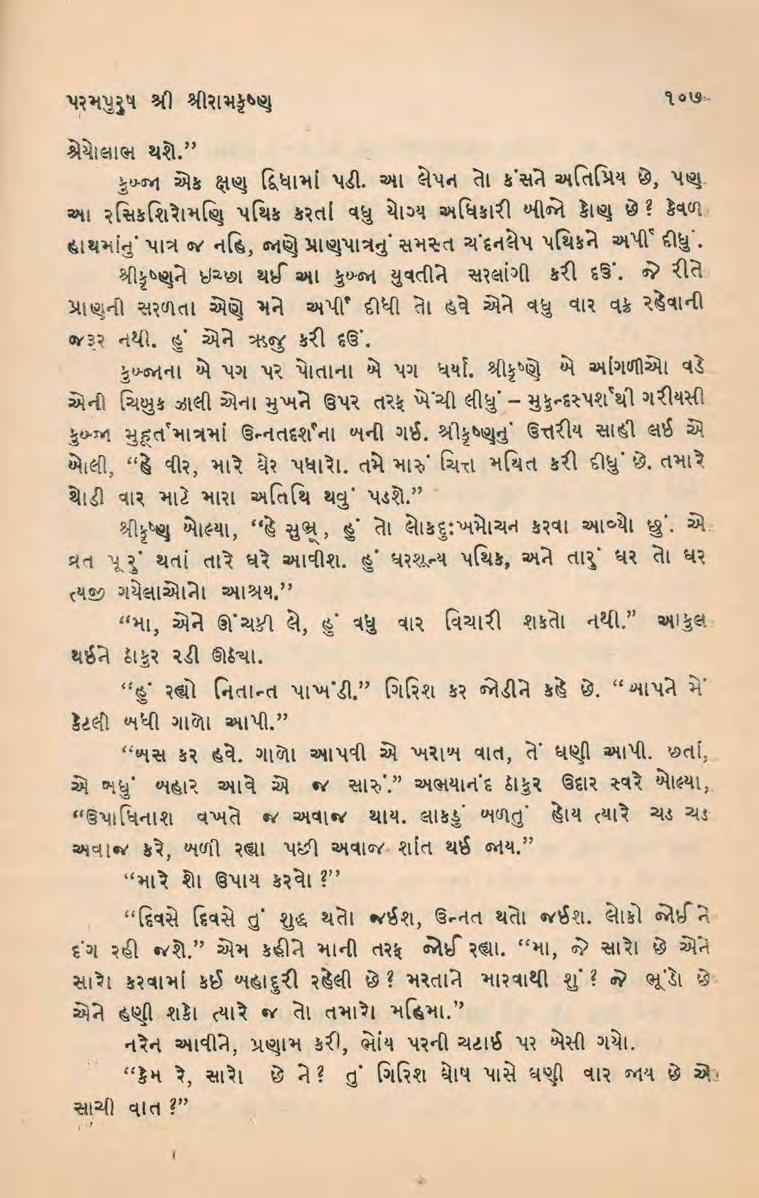 પરમપુરુષ શ્રી શ્રીરામકૃષ્ણ ૧૦૭
શ્રેયોલાભ થશે.”
કુબ્જા એક ક્ષણ દ્વિધામાં પડી. આ લેપન તો કંસને અતિપ્રિય છે, પણ
આ રસિકશિરોમણિ પથિક કરતાં વધુ યોગ્ય અધિકારી બીજો કોણ છે? કેવળ
હાથમાંનું પાત્ર જ નહિ, જાણે પ્રાણપાત્રનું સમસ્ત ચંદનલેપ પથિકને અર્પી દીધું.
શ્રીકૃષ્ણને ઇચ્છા થઈ આ કુબ્જા યુવતીને સરલાંગી કરી દઉં. જે રીતે
પ્રાણની સરળતા એણે મને અર્પી દીધી તો હવે એને વધુ વાર વક્ર રહેવાની
જરૂર નથી. હું એને ઋજુ કરી દઉં.
કુબ્જાના બે પગ પર પોતાના બે પગ ધર્યા. શ્રીકૃષ્ણે બે આંગળીઓ વડે
એની ચિબુક ઝાલી એના મુખને ઉપર તરફ ખેંચી લીધું – મુકુન્દસ્પર્શથી ગરીયસી
કુબ્જા મુહૂર્તમાત્રમાં ઉન્નતદર્શના બની ગઈ. શ્રીકૃષ્ણનું ઉત્તરીય સાહી લઈ એ
બોલી, “હે વીર, મારે ઘેર પધારો. તમે મારું ચિત્ત મથિત કરી દીધું છે. તમારે
થોડી વાર માટે મારા અતિથિ થવું પડશે.”
શ્રીકૃષ્ણ બોલ્યા, “હે સુભ્રૂ, હું તો લોકદુઃખમોચન કરવા આવ્યો છું. એ
વ્રત પૂરું થતાં તારે ઘરે આવીશ. હું ઘરશૂન્ય પથિક, અને તારું ઘર તો ઘર
ત્યજી ગયેલાઓનો આશ્રય.”
“મા, એને ઊંચકી લે, હું વધુ વાર વિચારી શકતો નથી.” આકુલ
થઈને ઠાકુર રડી ઊઠ્યા.
“હું રહ્યો નિતાન્ત પાખંડી.” ગિરિશ કર જોડીને કહે છે. “આપને મેં
કેટલી બધી ગાળો આપી.”
“બસ કર હવે. ગાળો આપવી એ ખરાબ વાત, તેં ઘણી આપી. છતાં,
એ બધું બહાર આવે એ જ સારું.” અભયાનંદ ઠાકુર ઉદાર સ્વરે બોલ્યા,
“ઉપાધિનાશ વખતે જ અવાજ થાય. લાકડું બળતું હોય ત્યારે ચડ ચડ
અવાજ કરે, બળી રહ્યા પછી અવાજ શાંત થઈ જાય.”
“મારે શો ઉપાય કરવો ?”
“દિવસે દિવસે તું શુદ્ધ થતો જઈશ, ઉન્નત થતો જઈશ. લોકો જોઈને
દંગ રહી જશે.” એમ કહીને માની તરફ જોઈ રહ્યા. “મા, જે સારો છે એને
સારો કરવામાં કઈ બહાદુરી રહેલી છે? મરતાને મારવાથી શું? જે ભૂંડો છે
એને હણી શકો ત્યારે જ તો તમારો મહિમા.”
નરેન આવીને, પ્રણામ કરી, ભોંય પરની ચટાઈ પર બેસી ગયો.
“કેમ રે, સારો છે ને? તું ગિરિશ ઘોષ પાસે ઘણી વાર જાય છે એ
સાચી વાત ?”